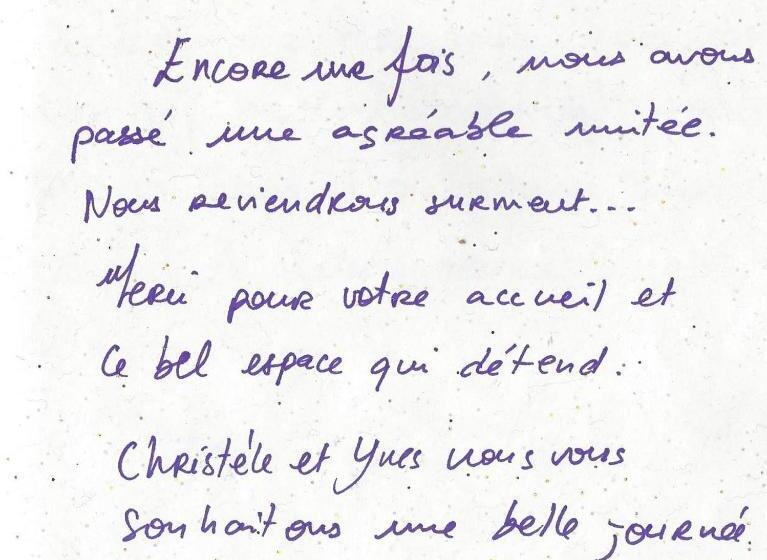 Encore une fois, nous avons
passé une agréable nuitée.
Nous reviendrons surment...
Merci pour votre accueil et
ce bel espace qui détend.
Christéle et Yves nous vous
souhaitons une belle journée